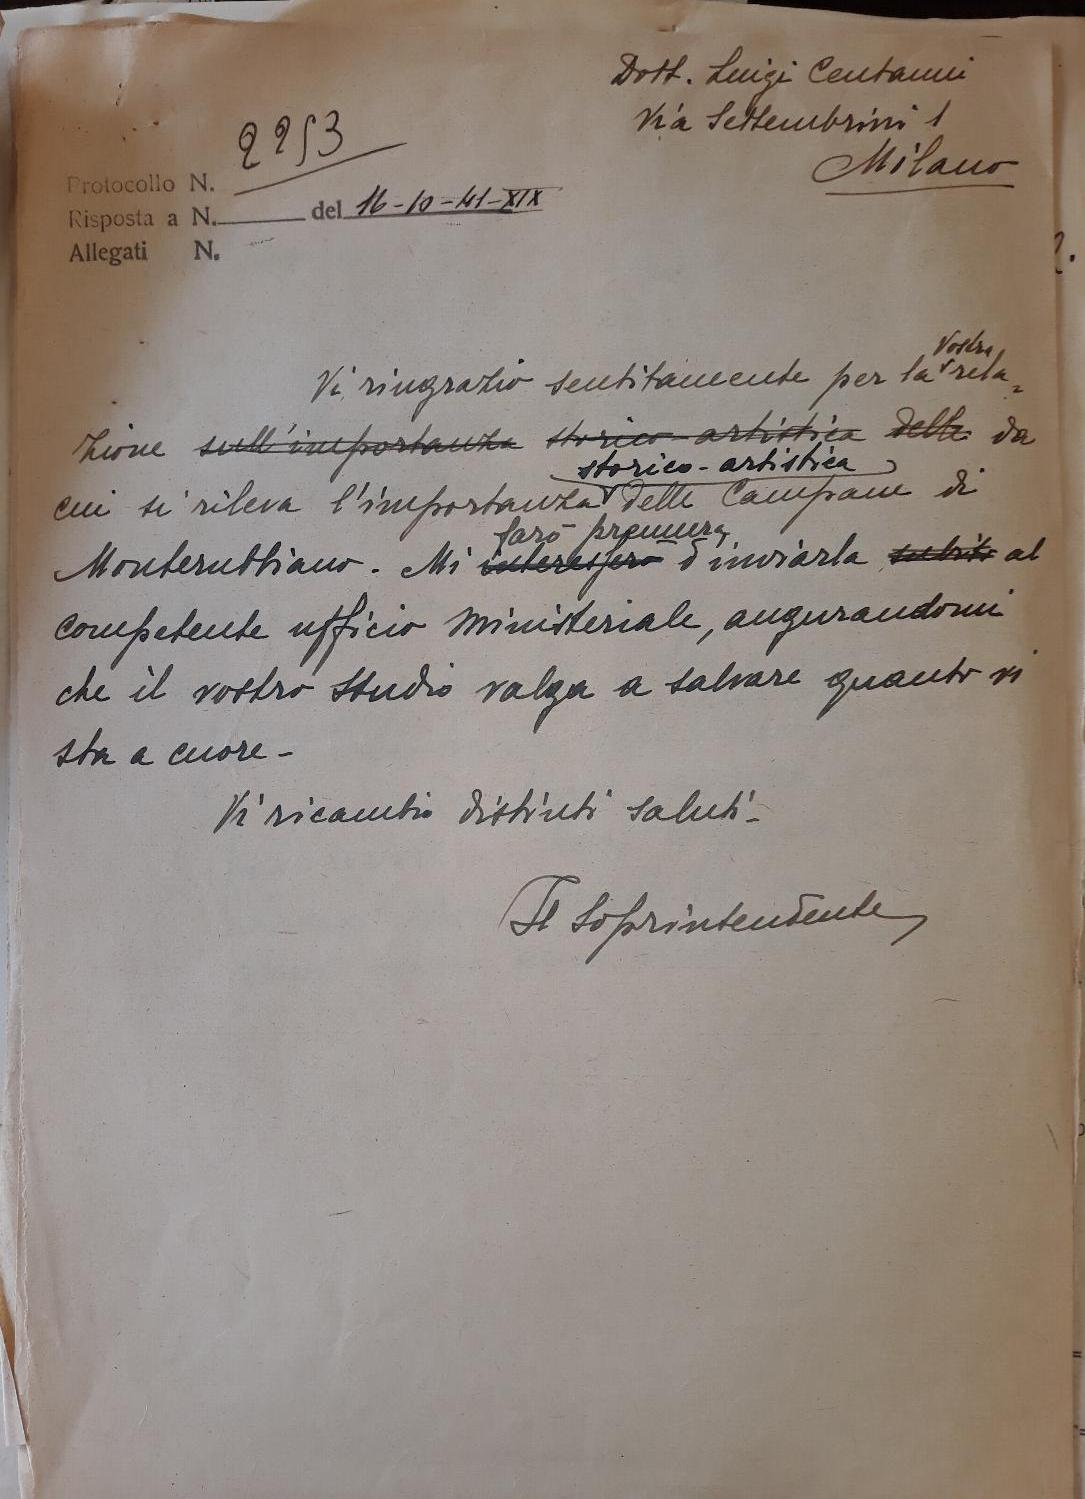 Dott. Luigi Centanni
Via Settembrini 1
Milano
Protocollo N. 2253
Risposta a N. del 16-10-41-XIX
Allegati N.
Vostra
Vi ringrazio sentitamente per la rela=
zione sull'importanza storico-artistica delle da
storico-artistica
cui si rileva l'importanza delle Campane di
farò premura
Monterubbiano. Mi interesserò d'inviarla subito al
competente ufficio Ministeriale, augurandomi
che il vostro studio valga a salvare quanto vi
sta a cuore-
Vi ricambio distinti saluti-
Il Soprintendente